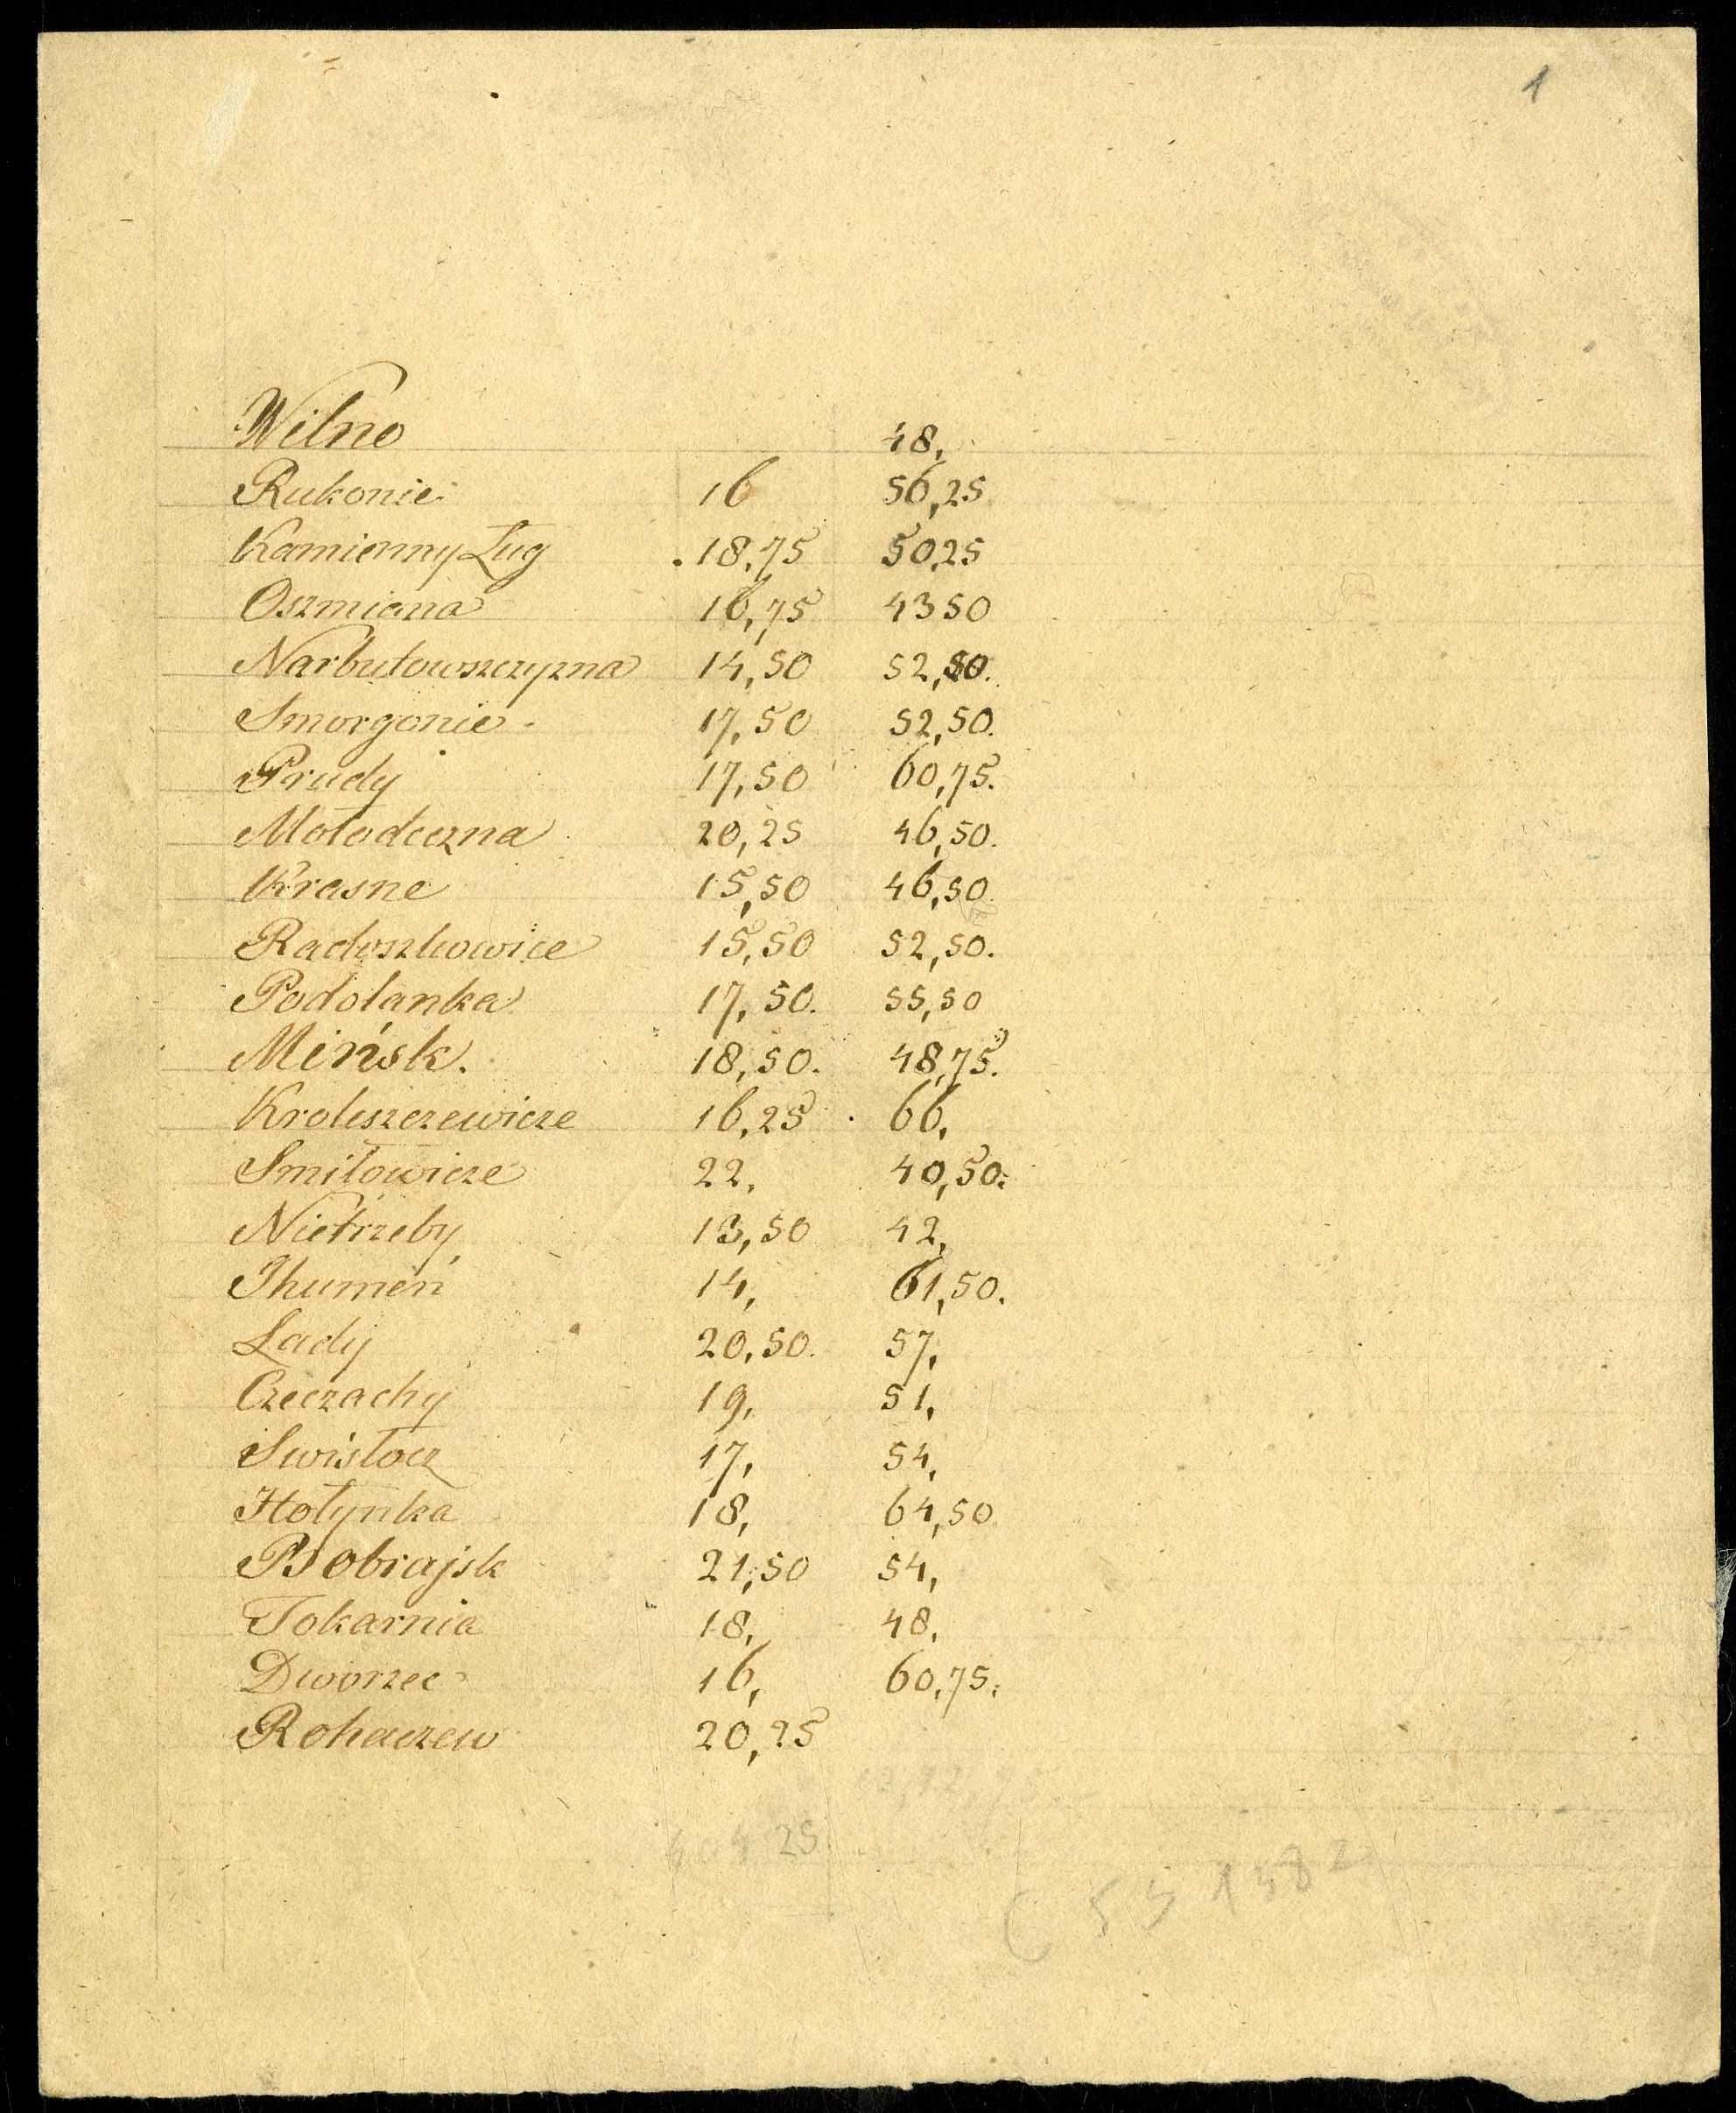 1
Wilno 48,
Rukonie 16 56,25
Kamienny Ług 18,75 50,25
Oszmiana 16,75 43 50
Narbutowszczyzna 14,50 52,50.
Smorgonie 17,50 52,50.
Prudy 17,50 60,75.
Mołodeczna 20,25 46,50.
Krasne 15,50 46,50
Radoszkowice 15,50 52,50.
Podolanka 17,50. 55,50
Mińsk. 18,50. 48,75.
Kroleszczewicze 16,25 66,
Smiłowicze 22, 40,50.
Nietrzeby 13,50 42,
Ihumeń 14, 61,50.
Lady 20,50. 57,
Czeczachy 19, 51,
Swisłocz 17, 54,
Hołynka 18, 64,50
Bobrajsk 21,50 54,
Tokarnia 18, 48,
Dworzec 16, 60,75.
Rohaczew 20,25
25